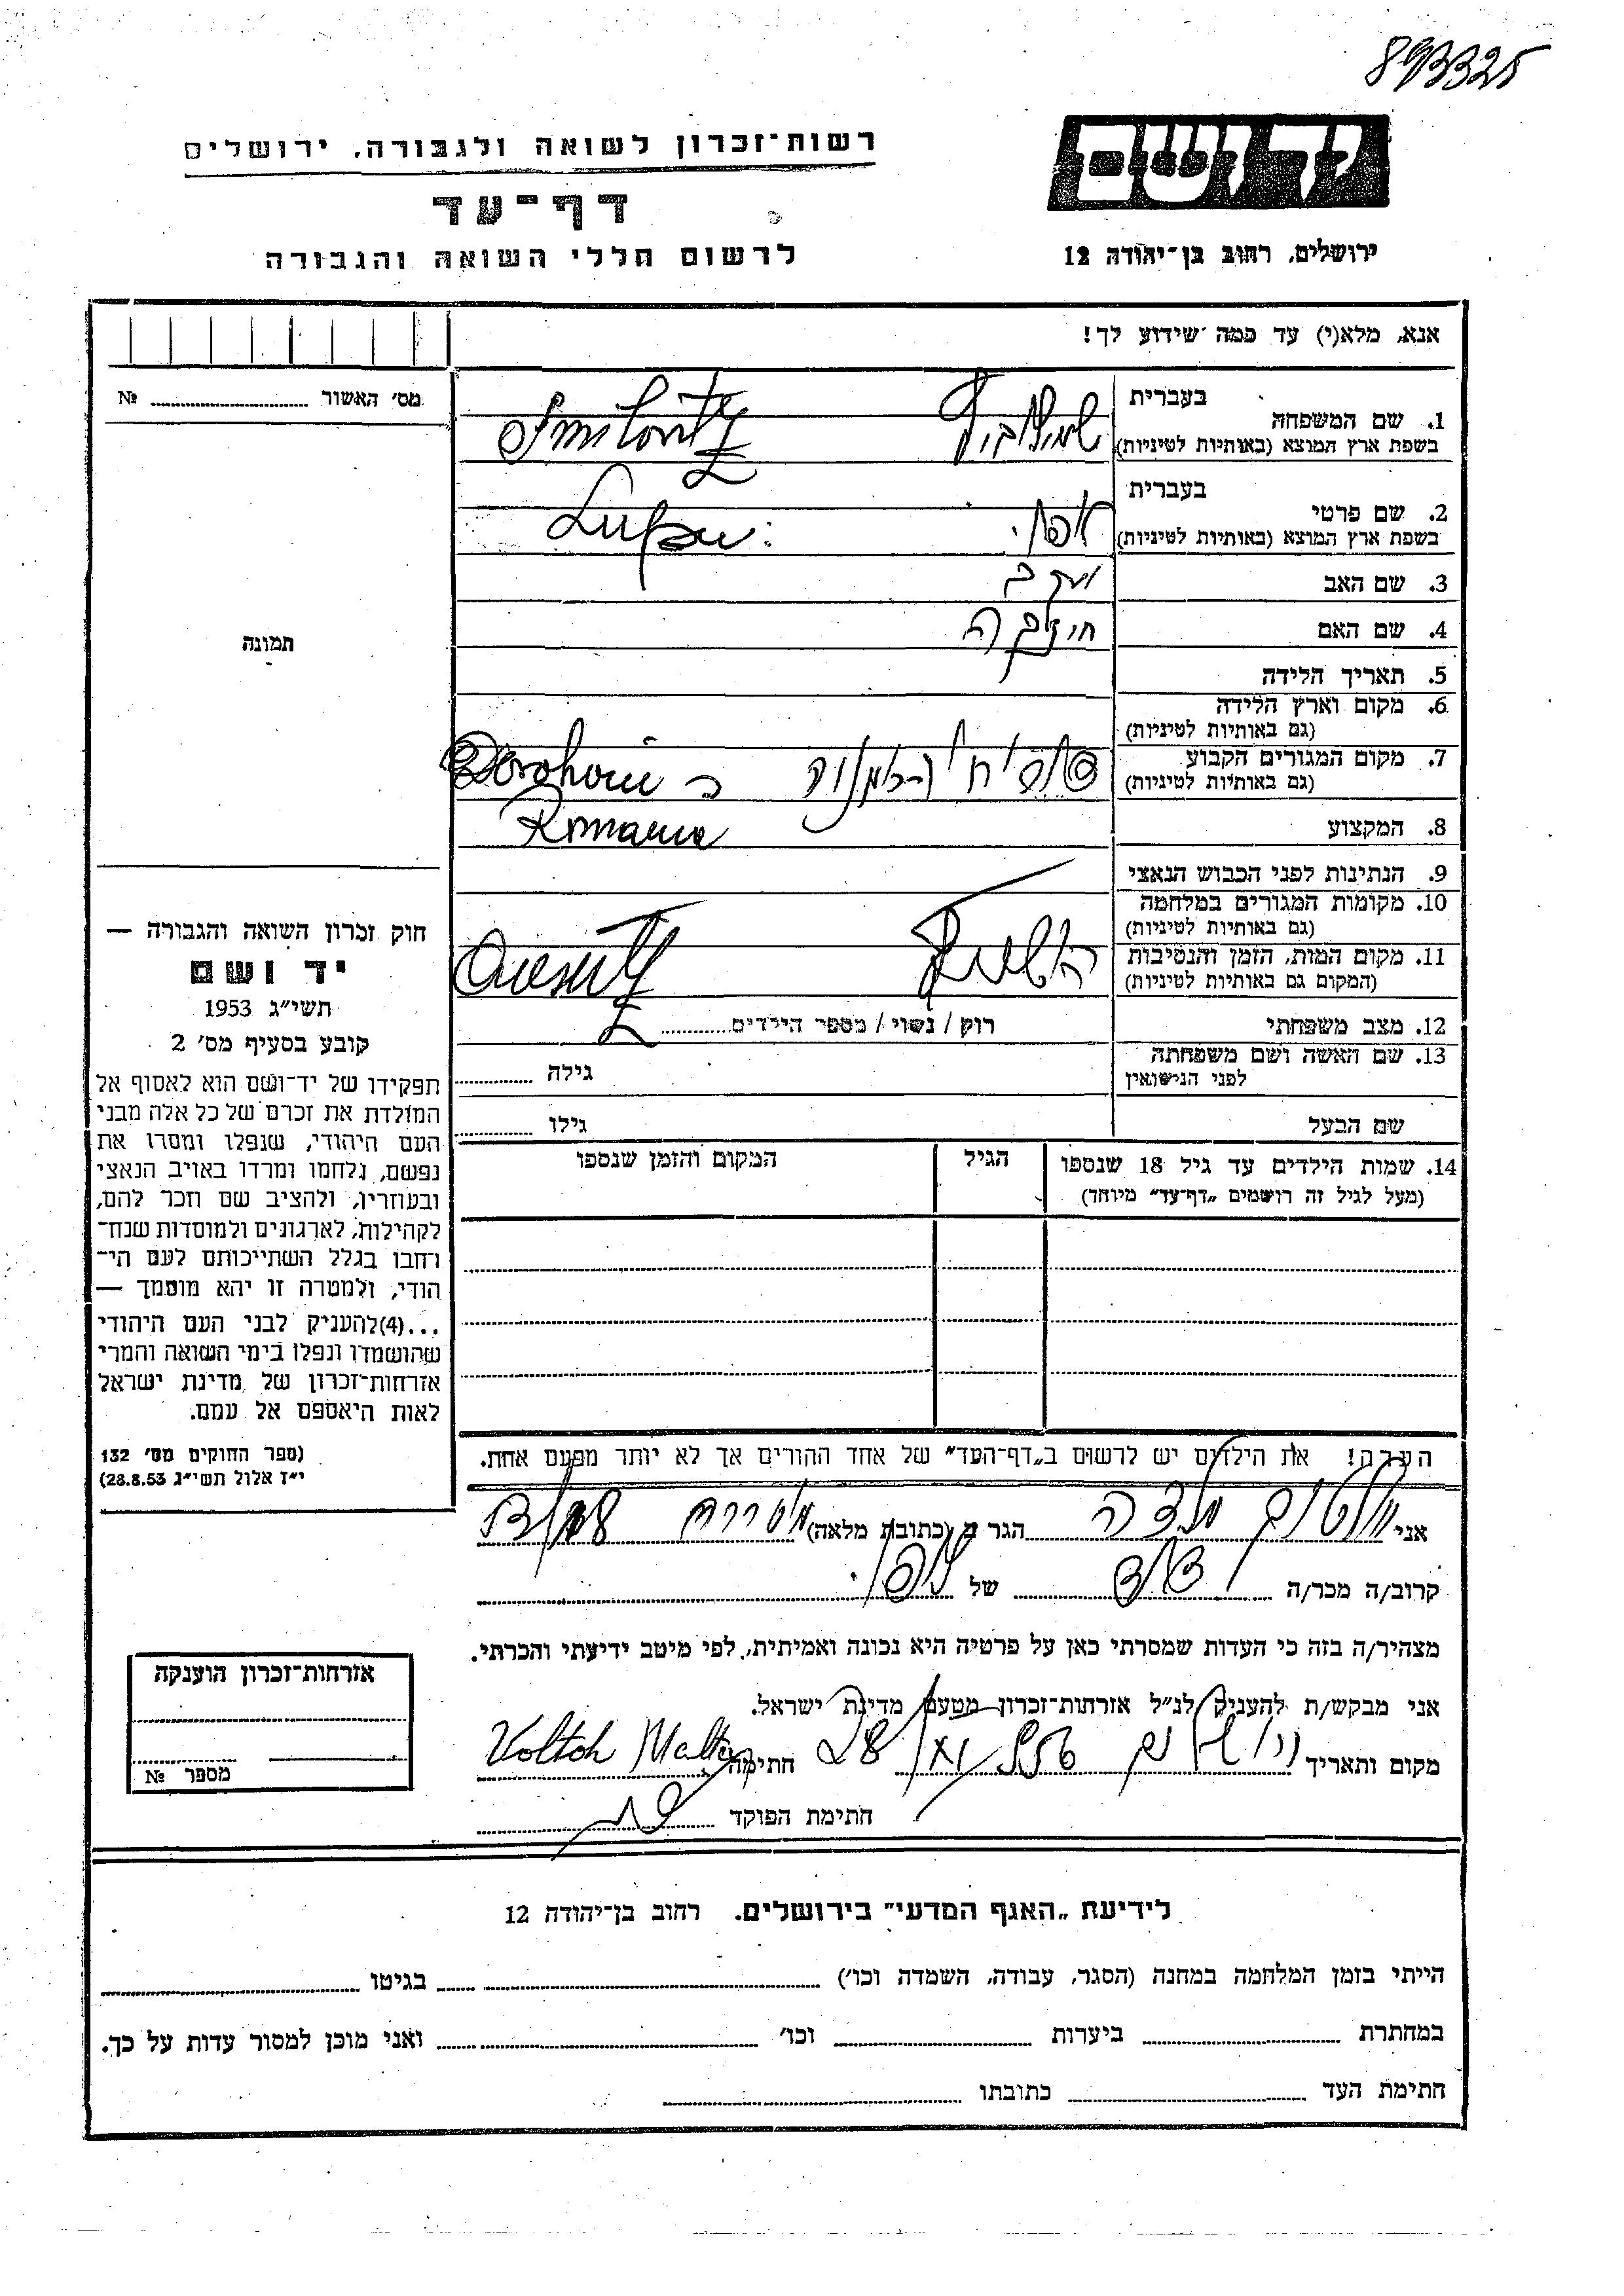 893325
יד ושם
ירושלים, רחוב בן־יהודה 12
רשות־זכרון לשואה ולגבורה, ירושלים
דף־עד
לרשום חללי השואה והגבורה
אנא, מלא(י) עד כמה שידוע לך!
מס׳ האשור № 
1. שם המשפחה
בעברית שמילוביץ
בשפת ארץ המוצא (באותיות לטיניות) Smilovitz
2. שם פרטי
בעברית
בשפת ארץ המוצא (באותיות לטיניות) Lupu
3. שם האב יעקב
4. שם האם
5. תאריך הלידה
6. מקום וארץ הלידה
(גם באותיות לטיניות)
7. מקום המגורים הקבוע Dorohoiu
(גם באותיות לטיניות) Romania
8. המקצוע
9. הנתינות לפני הכבוש הנאצי
10. מקומות המגורים במלחמה
(גם באותיות לטיניות)
11. מקום המות, הזמן והנסיבות
(המקום גם באותיות לטיניות)
12. מצב משפחתי רוק / נשוי / מספר הילדים
13. שם האשה ושם משפחתה
לפני הנישואין גילה
שם הבעל גילו
14. שמות הילדים עד גיל 18 שנספו הגיל המקום והזמן שנספו
(מעל לגיל זה רושמים „דף־עד" מיוחד)
הערה! את הילדים יש לרשום ב„דף־העד" של אחד ההורים אך לא יותר מפעם אחת.
תמונה
חוק זכרון השואה והגבורה —
יד ושם
תשי״ג 1953
קובע בסעיף מס׳ 2
תפקידו של יד־ושם הוא לאסוף אל
המולדת את זכרם של כל אלה מבני
העם היהודי, שנפלו ומסרו את
נפשם, נלחמו ומרדו באויב הנאצי
ובעוזריו, ולהציב שם וזכר להם,
לקהילות, לארגונים ולמוסדות שנח־
רבו בגלל השתייכותם לעם הי־
הודי, ולמטרה זו יהא מוסמך —
...(4)להעניק לבני העם היהודי
שהושמדו ונפלו בימי השואה והמרי
אזרחות־זכרון של מדינת ישראל
לאות היאספם אל עמם.
(ספר החוקים מס׳ 132
י״ז אלול תשי״ג 28.8.53)
אני הגר ב (כתובת מלאה)
קרוב/ה מכר/ה של
מצהיר/ה בזה כי העדות שמסרתי כאן על פרטיה היא נכונה ואמיתית, לפי מיטב ידיעתי והכרתי.
אני מבקש/ת להעניק לנ״ל אזרחות־זכרון מטעם מדינת ישראל.
מקום ותאריך חתימה
חתימת הפוקד
אזרחות־זכרון הוענקה
מספר №
לידיעת „האגף המדעי" בירושלים. רחוב בן־יהודה 12
הייתי בזמן המלחמה במחנה (הסגר, עבודה, השמדה וכו׳) בגיטו
במחתרת ביערות וכו׳ ואני מוכן למסור עדות על כך.
חתימת העד כתובתו